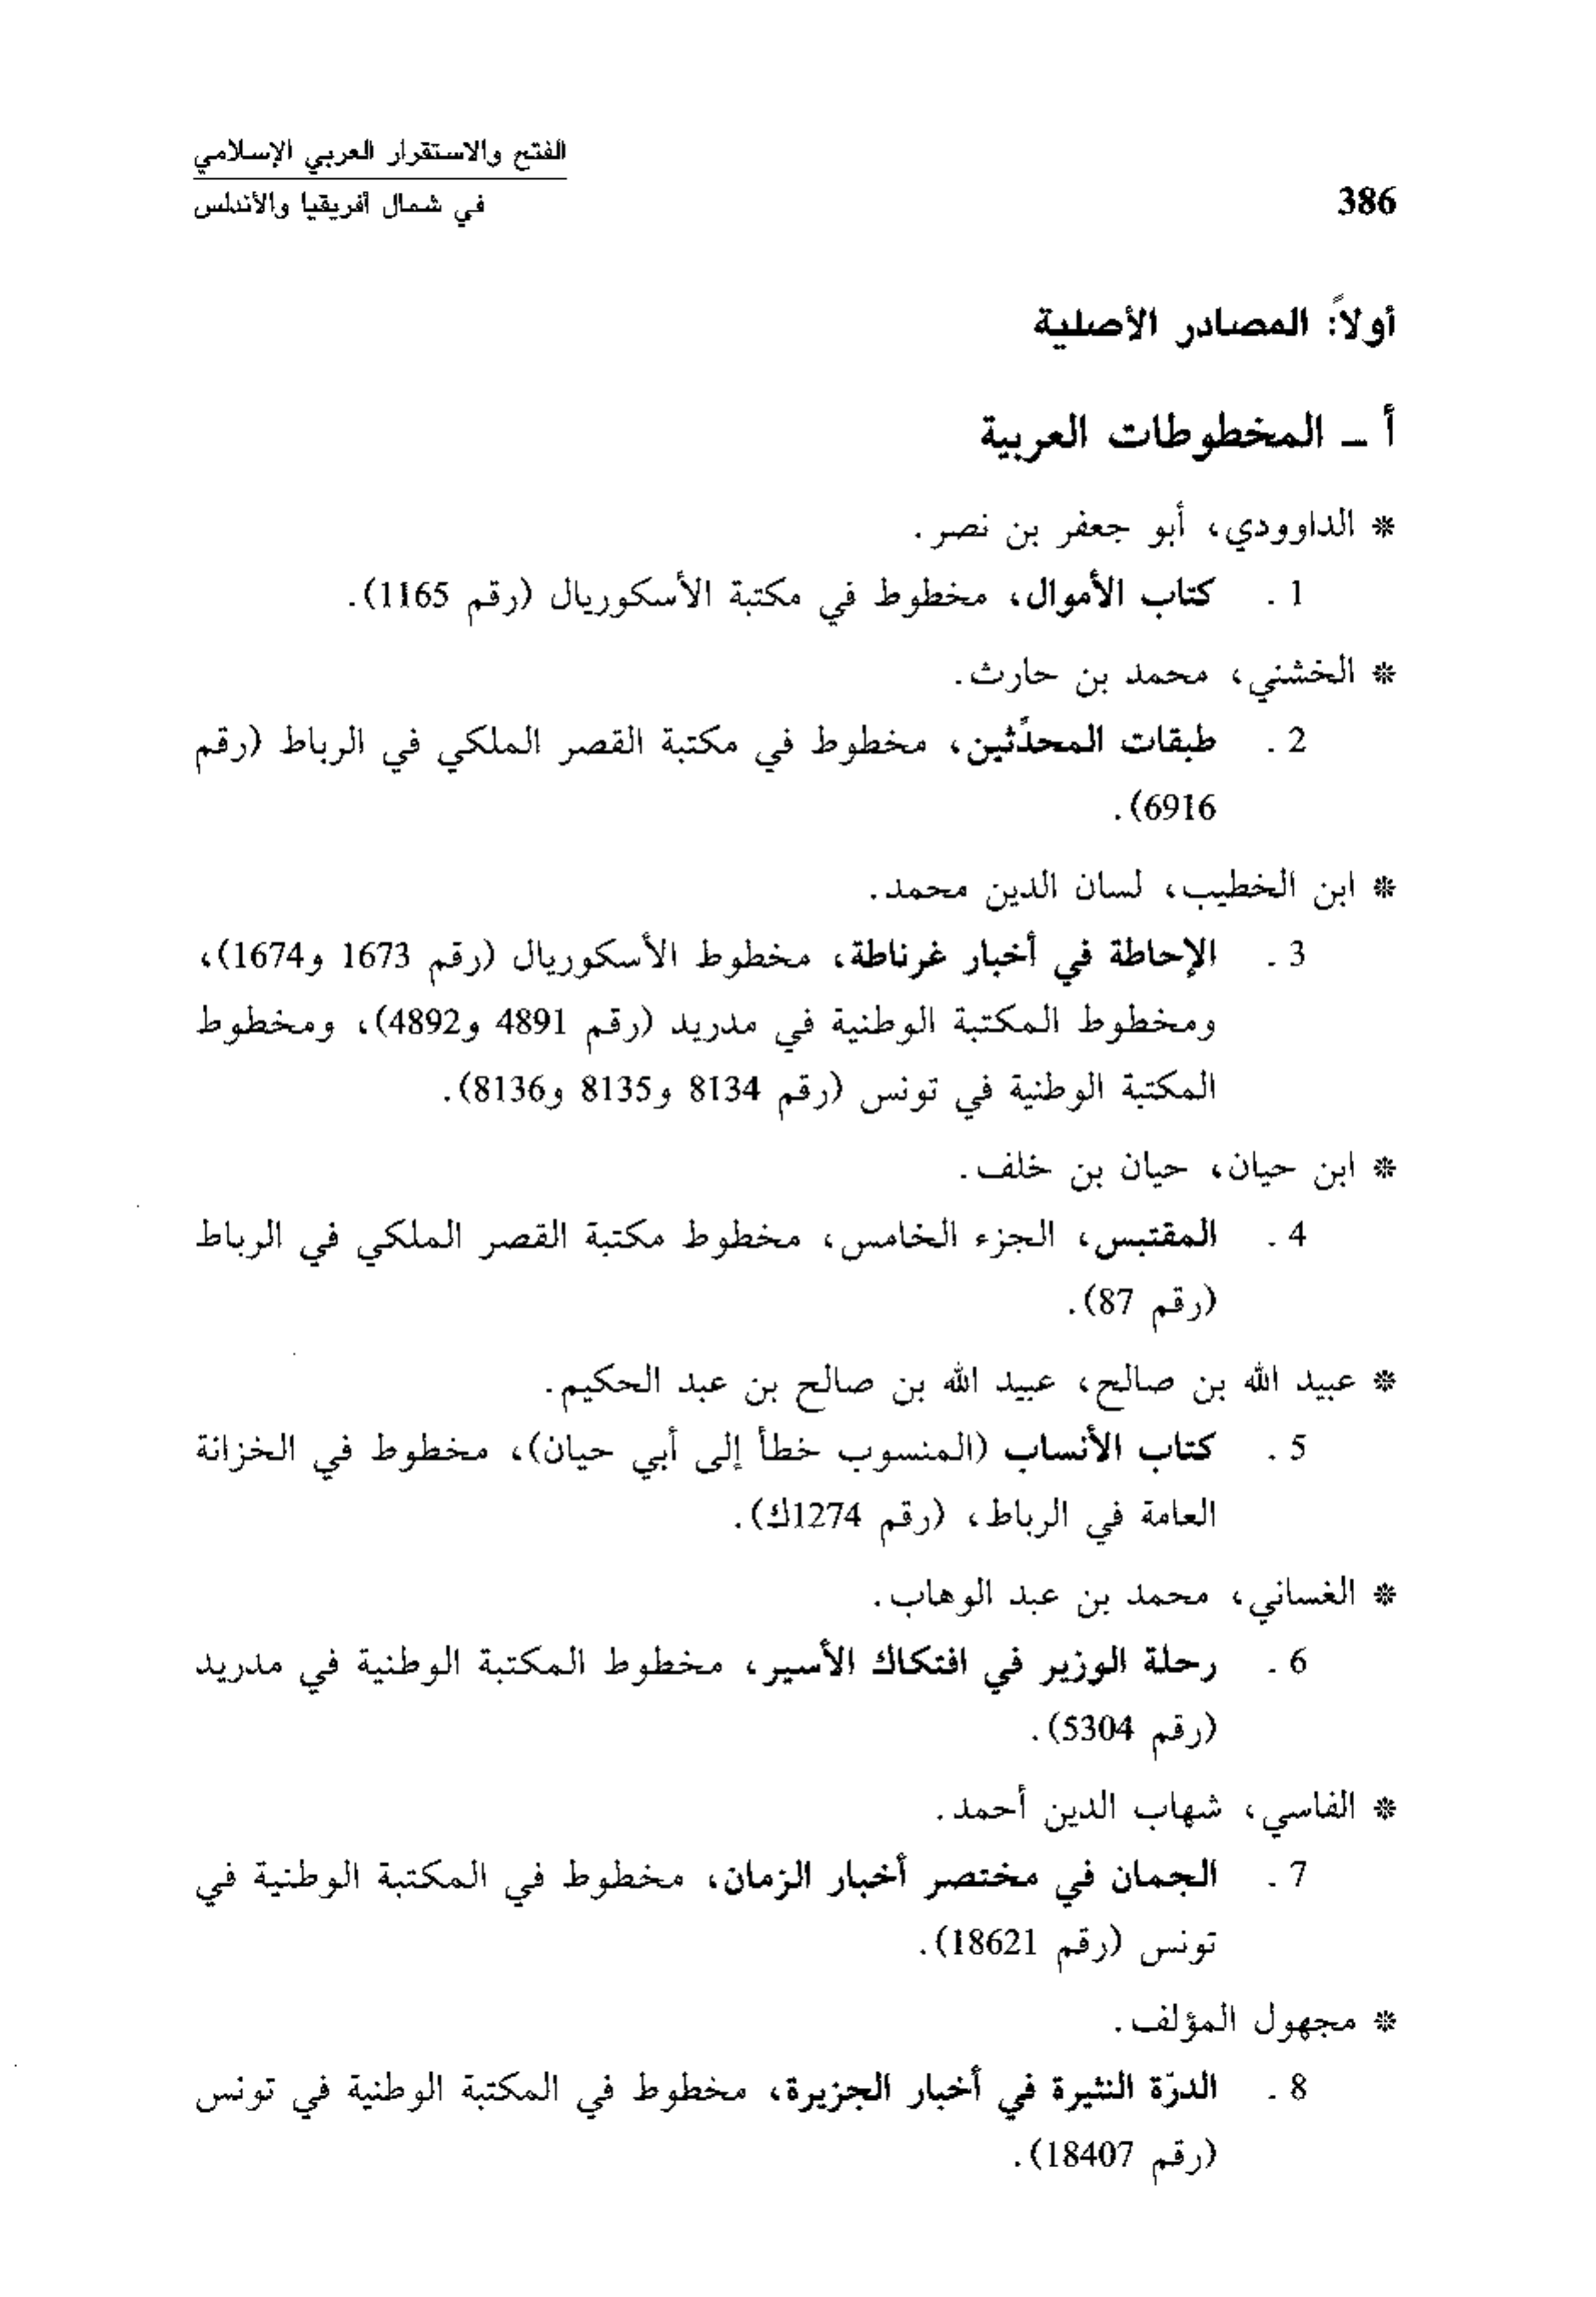 الفتح والاستقرار العربي الإسلامي
في شمال أفريقيا والأندلس
386
أولاً: المصادر الأصلية
أ ــ المخطوطات العربية
* الداوودي، أبو جعفر بن نصر.
1 . كتاب الأموال، مخطوط في مكتبة الأسكوريال (رقم 1165).
* الخشني، محمد بن حارث.
2 . طبقات المحدّثين، مخطوط في مكتبة القصر الملكي في الرباط (رقم
6916).
* ابن الخطيب، لسان الدين محمد.
3 . الإحاطة في أخبار غرناطة، مخطوط الأسكوريال (رقم 1673 و1674)،
ومخطوط المكتبة الوطنية في مدريد (رقم 4891 و4892)، ومخطوط
المكتبة الوطنية في تونس (رقم 8134 و8135 و8136).
* ابن حيان، حيان بن خلف.
4 . المقتبس، الجزء الخامس، مخطوط مكتبة القصر الملكي في الرباط
(رقم 87).
* عبيد الله بن صالح، عبيد الله بن صالح بن عبد الحكيم.
5 . كتاب الأنساب (المنسوب خطأ إلى أبي حيان)، مخطوط في الخزانة
العامة في الرباط، (رقم 1274ك).
* الغساني، محمد بن عبد الوهاب.
6 . رحلة الوزير في افتكاك الأسير، مخطوط المكتبة الوطنية في مدريد
(رقم 5304).
* الفاسي، شهاب الدين أحمد.
7 . الجمان في مختصر أخبار الزمان، مخطوط في المكتبة الوطنية في
تونس (رقم 18621).
* مجهول المؤلف.
8 . الدرّة النثيرة في أخبار الجزيرة، مخطوط في المكتبة الوطنية في تونس
(رقم 18407).